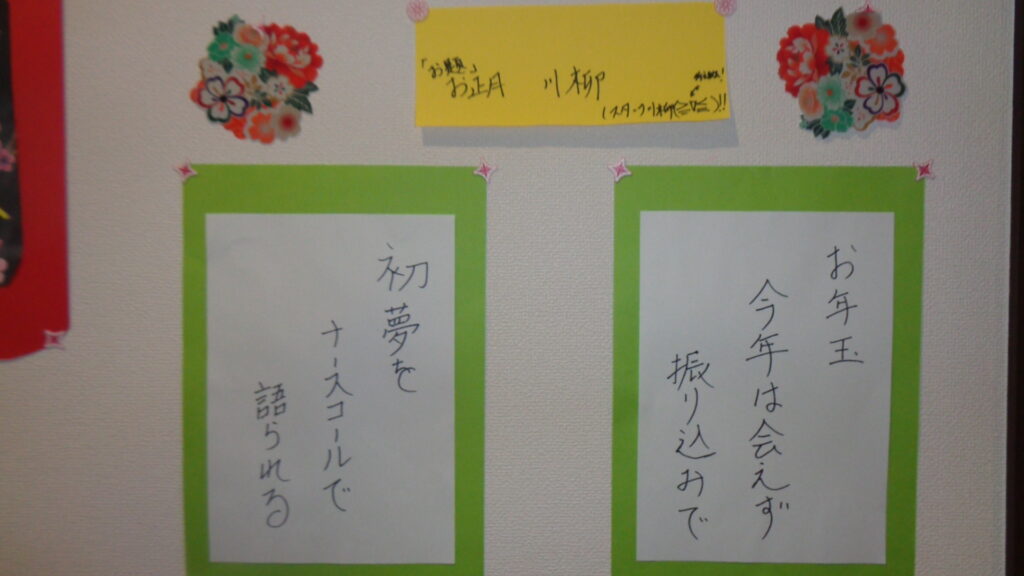 「お題」
お正月 川柳
(スタッフ川柳(≧∇≦)!!
お年玉
今年は会えず
振り込みで
初夢を
ナースコールで
語られる